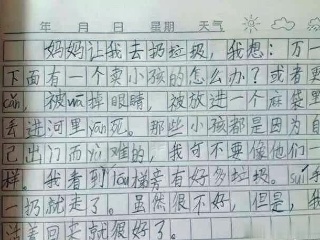 年 月 日 星期 天气
妈妈让我去扔垃圾，我想：万一
下面有一个卖小孩的怎么办？或者要
cǎn，被wā掉眼睛，被放进一个麻袋里
丢进河里yān死。那些小孩都是因为自
己出门而yù难的，我可不要像他们一
样。我看到lóu梯旁有好多垃圾。suí手
一扔就走了。虽然很不好，但是，我
活着回来就很好了。